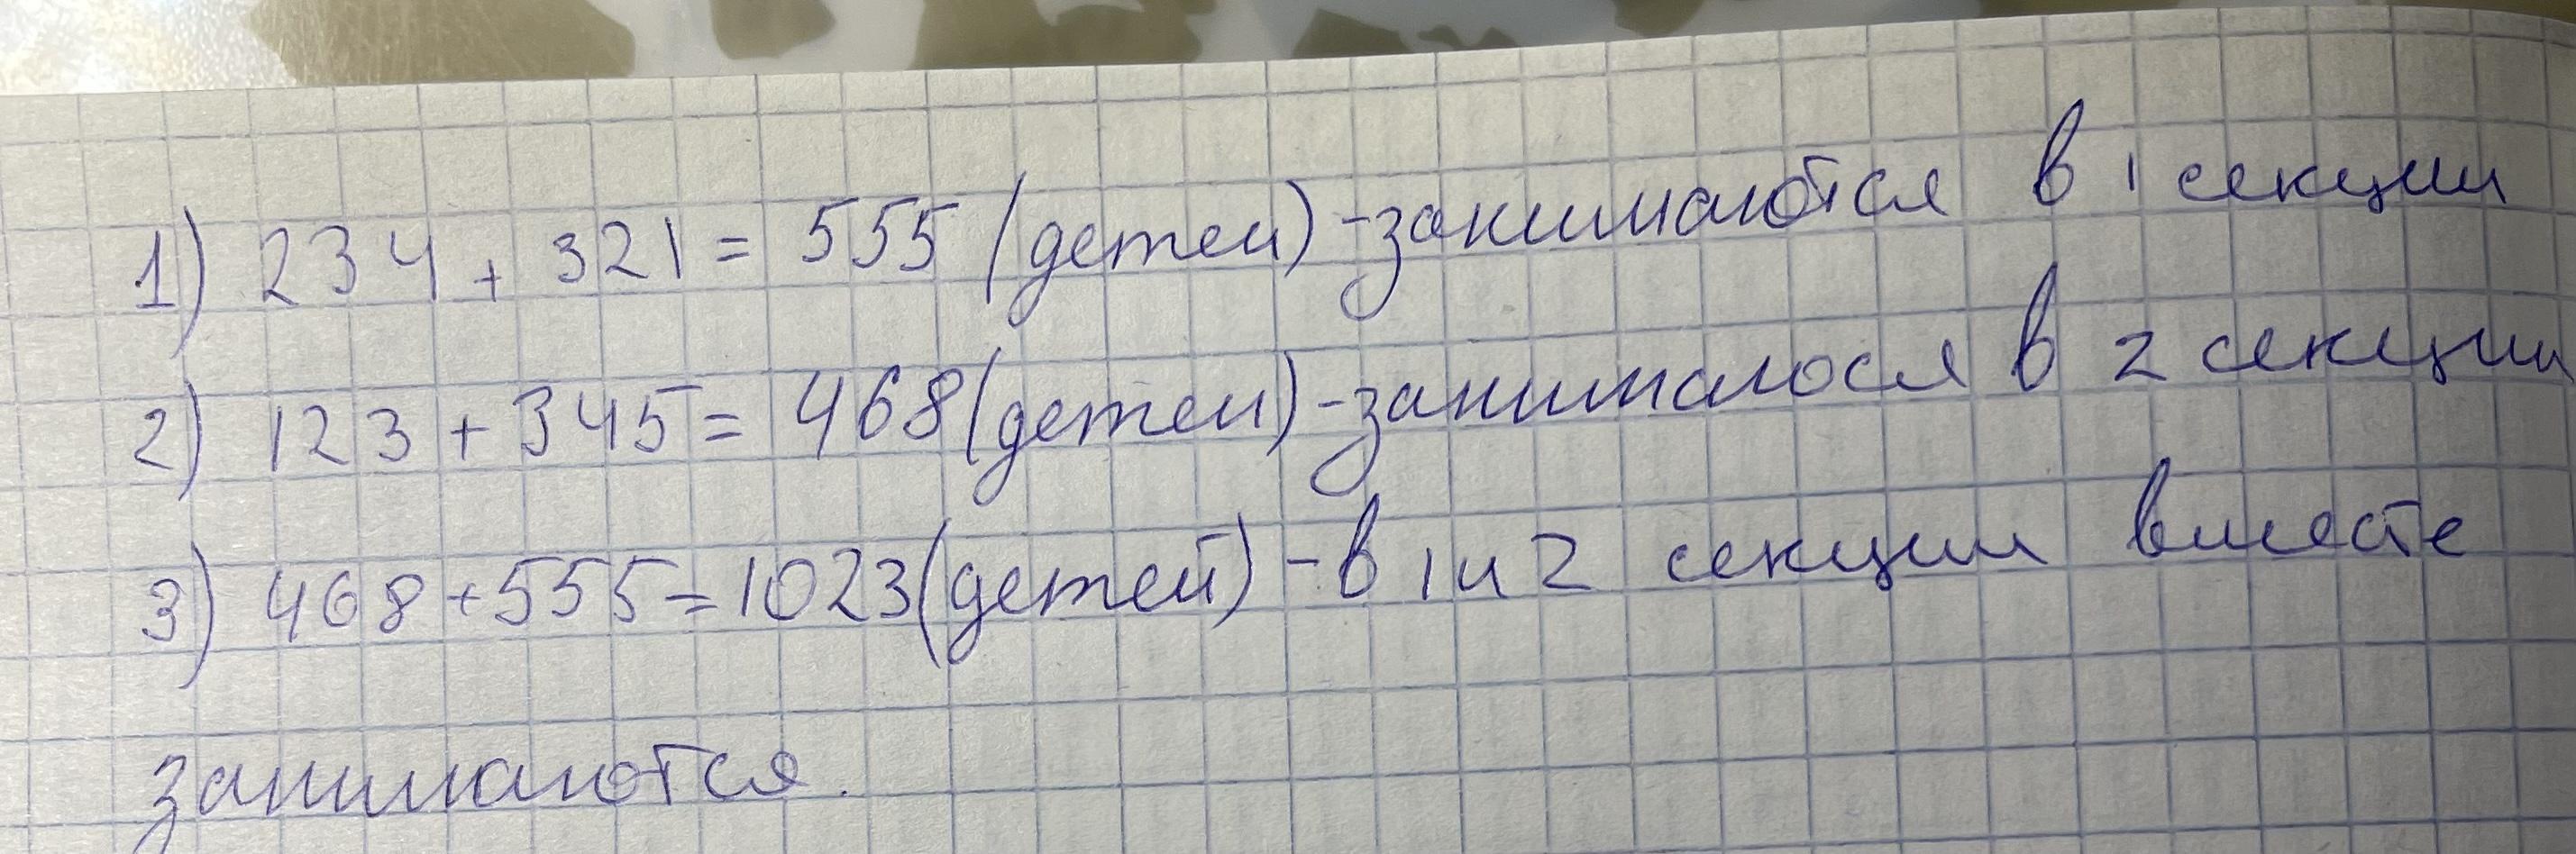 1) 234 + 321 = 555 (детей) - занимаются в 1 секции
2) 123 + 345 = 468 (детей) - занималося в 2 секции
3) 468 + 555 = 1023 (детей) - в 1 и 2 секции вместе
занимаются.